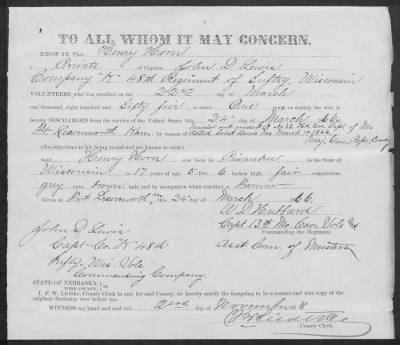 TO ALL WHOM IT MAY CONCERN.
KNOW YE That Henry Horn
a Private of Captain John D Lewis
Company "K" 48th Regiment of Inftry, Wisconsin
VOLUNTEERS, who was enrolled on the 22nd day of March
one thousand, eight hundred and Sixty five to serve One years or during the war, is hereby
DISCHARGED from the service of the United States this 24th day of March 1866
at Ft. Kan.
(No objections to his being re-enlisted are known to exist.)
Said Henry Horn was born in
Wisconsin is 17 years of age, 5 feet 6 inches high, fair complexion,
grey eyes, brown hair, and by occupation when enrolled a Farmer
Given at Fort this 24 day of March 1866.
John D Lewis
Capt. Co. K 48th
Inftry. Wis. Vols.
Commanding Company.
W. D. Hubbard
Capt. 13th Mo Cav Vols
Commanding the Regiment.
Asst Com. of Musters
STATE OF NEBRASKA,
YORK COUNTY, ss.
County Clerk in and for said County, do hereby certify the foregoing to be a correct and true copy of the
original discharge now before me.
WITNESS my hand and seal this 2nd day of
County Clerk.